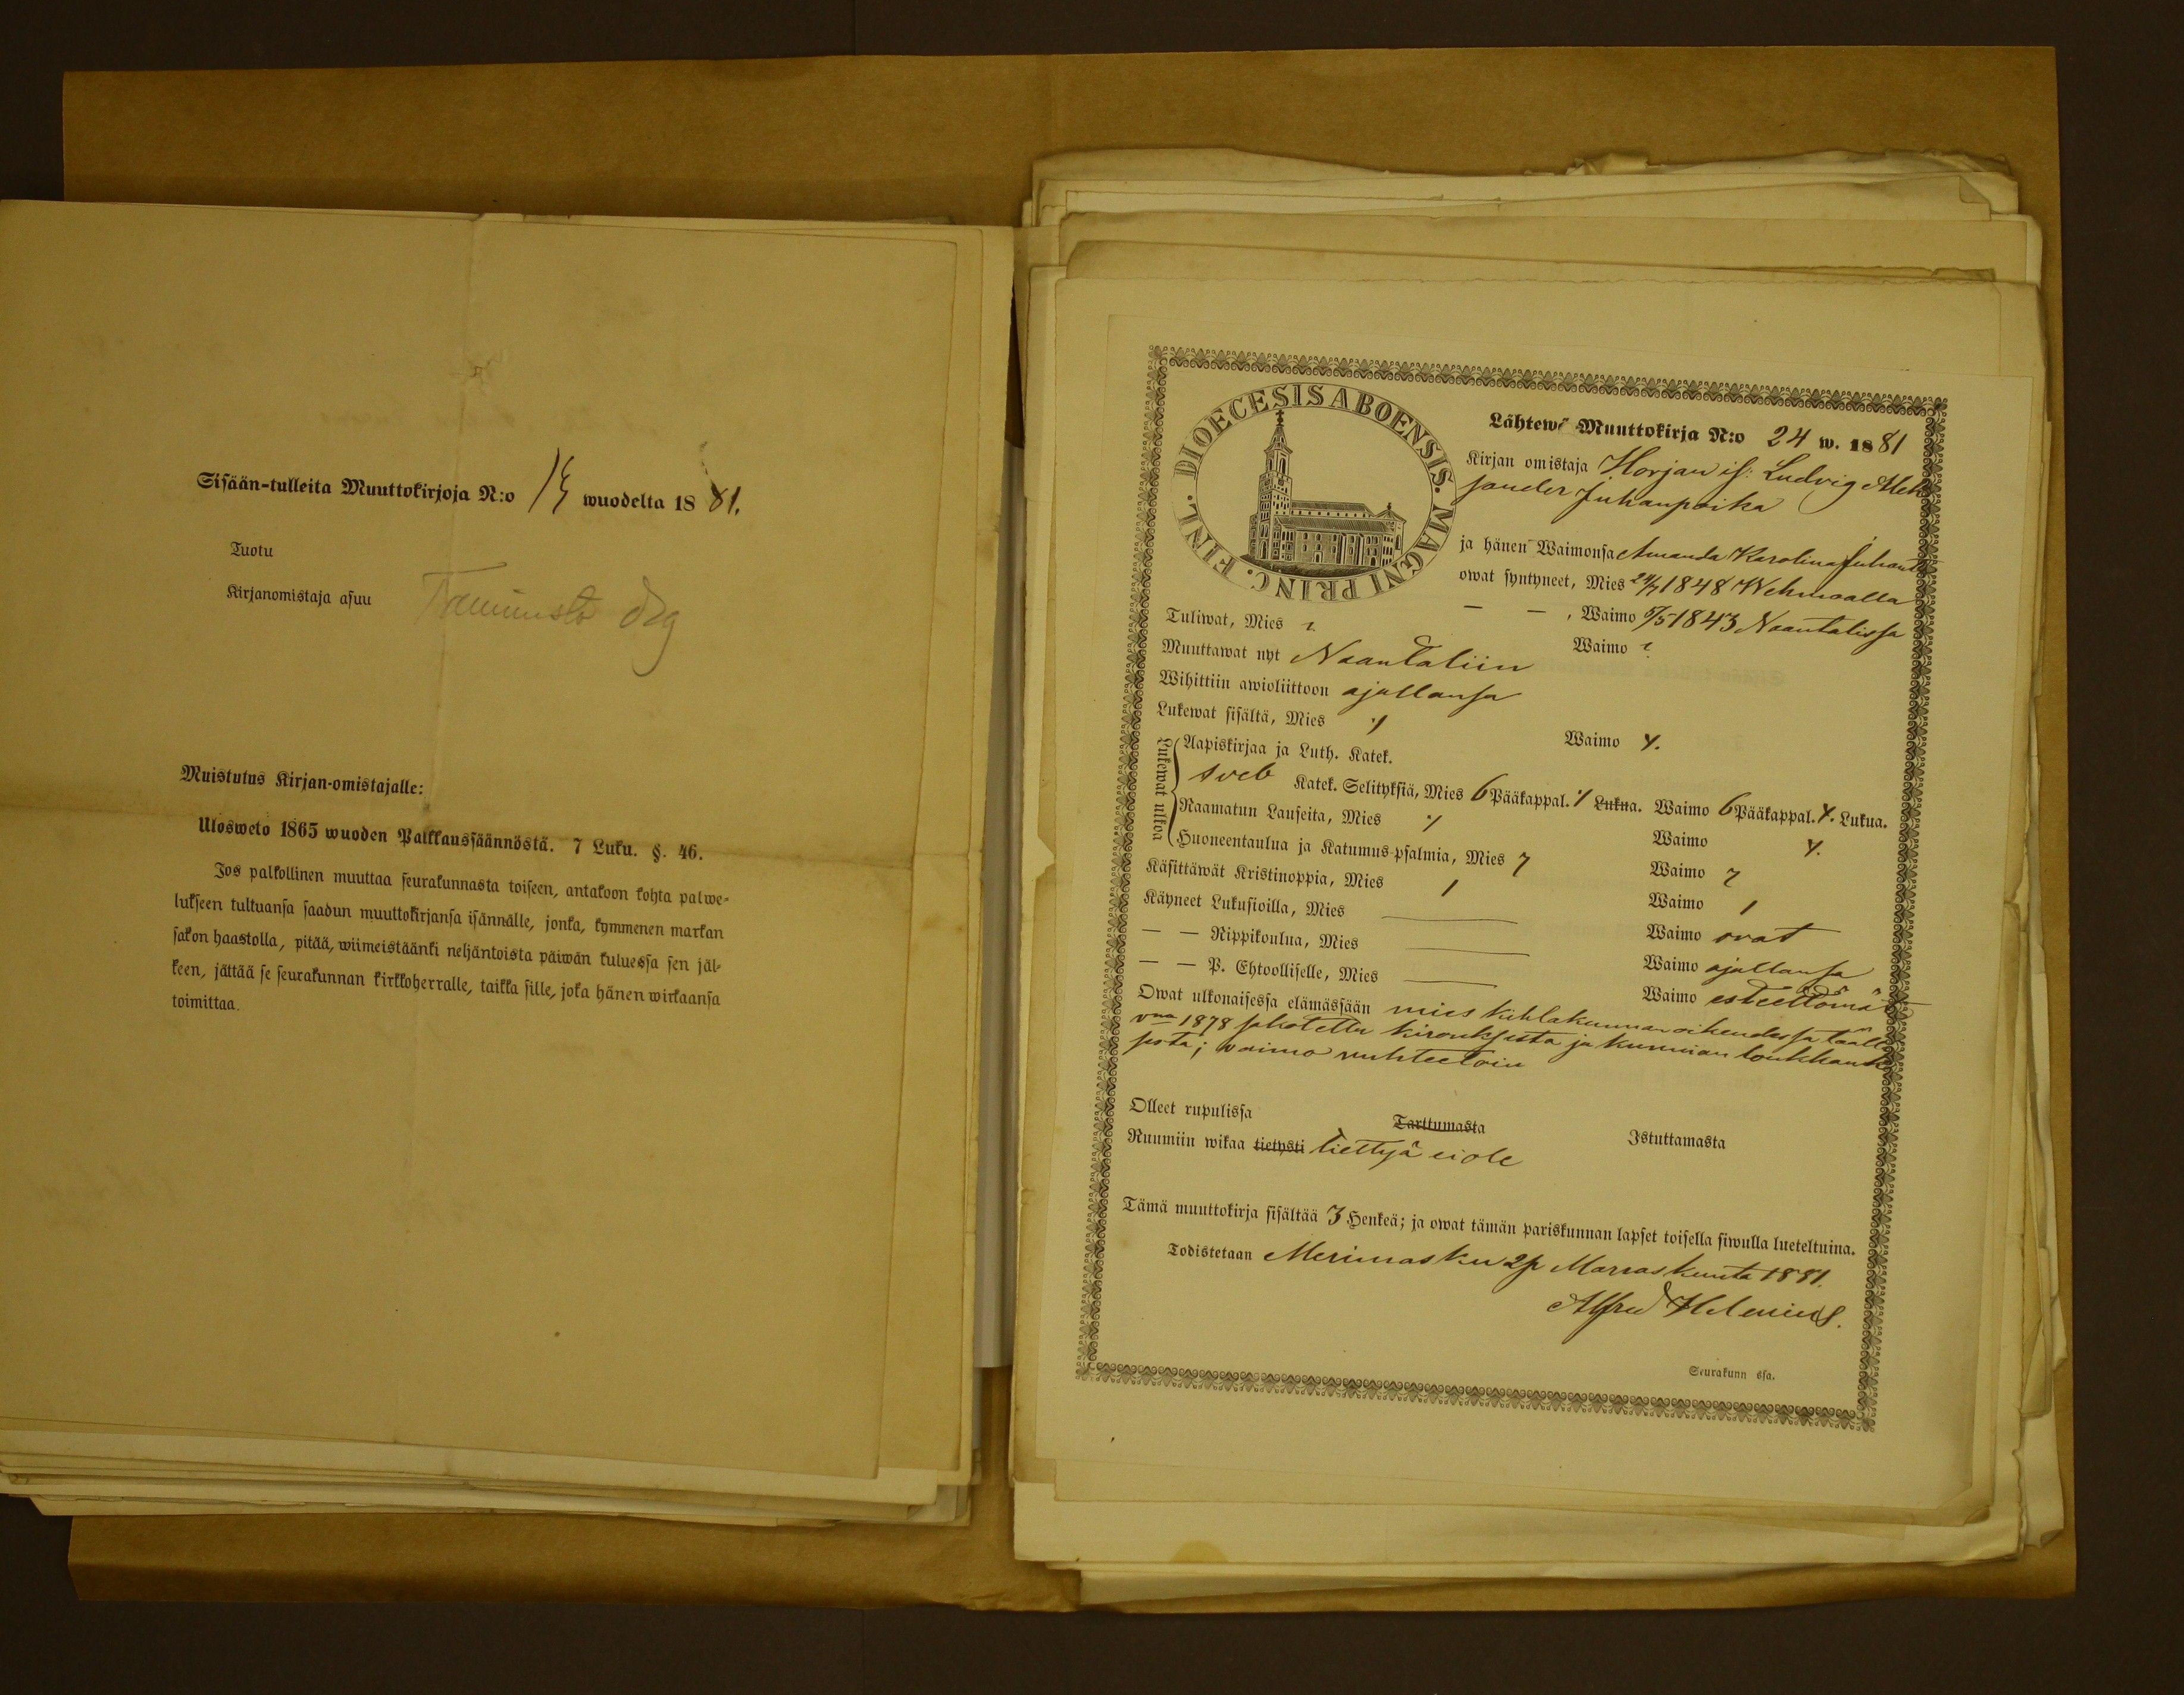 Sisään-tulleita Muuttokirjoja N:o wuodelta 1881.
Tuotu
Kirjanomistaja asuu
Muistutus Kirjan-omistajalle:
Ulosweto 1865 wuoden Palkkaussäännöstä. 7 Luku. §. 46.
Jos palkollinen muuttaa seurakunnasta toiseen, antakoon kohta palwe-
lukseen tultuansa saadun muuttokirjansa isännälle, jonka, kymmenen markan
sakon haastolla, pitää, wiimeistäänki neljäntoista päiwän kuluessa sen jäl-
keen, jättää se seurakunnan kirkkoherralle, taikka sille, joka hänen wirkaansa
toimittaa.
DIOECESIS ABOENSIS. MAGNI PRINC. FINL.
Lähtewä Muuttokirja N:o 24 w. 1881
Kirjan omistaja Horjan is: Ludvig Alek
sander Juhanpoika
ja hänen Waimonsa Amanda Karolina Juhant
owat syntyneet, Mies 1848 Wehmaalla
— — , Waimo 6/5 1843 Naantalissa
Tuliwat, Mies ? Waimo ?
Muuttawat nyt Naantaliin
Wihittiin awioliittoon ajallansa
Lukewat sisältä, Mies Waimo
Lukewat ulkoa
Aapiskirjaa ja Luth. Katek.
Sveb Katek. Selityksiä, Mies 6 Pääkappal. Lukua. Waimo 6 Pääkappal. Lukua.
Raamatun Lauseita, Mies Waimo
Huoneentaulua ja Katumus-psalmia, Mies 7 Waimo 7
Käsittäwät Kristinoppia, Mies 1 Waimo 1
Käyneet Lukusioilla, Mies Waimo ovat
— — Rippikoulua, Mies Waimo ajallansa
— — P. Ehtoolliselle, Mies Waimo esteettömät
Owat ulkonaisessa elämässään mies kihlakunnan oikeudessa täällä
vna 1878 sakotettu kirouksista ja kunnian loukkauk
sista; vaimo nuhteetoin
Olleet rupulissa Tarttumasta Istuttamasta
Ruumiin wikaa tietysti tiettyä ei ole
Tämä muuttokirja sisältää 3 Henkeä; ja owat tämän pariskunnan lapset toisella siwulla lueteltuina.
Todistetaan Merimasku 2 p Marraskuuta 1881.
Alfred Helenius.
Seurakunn ssa.